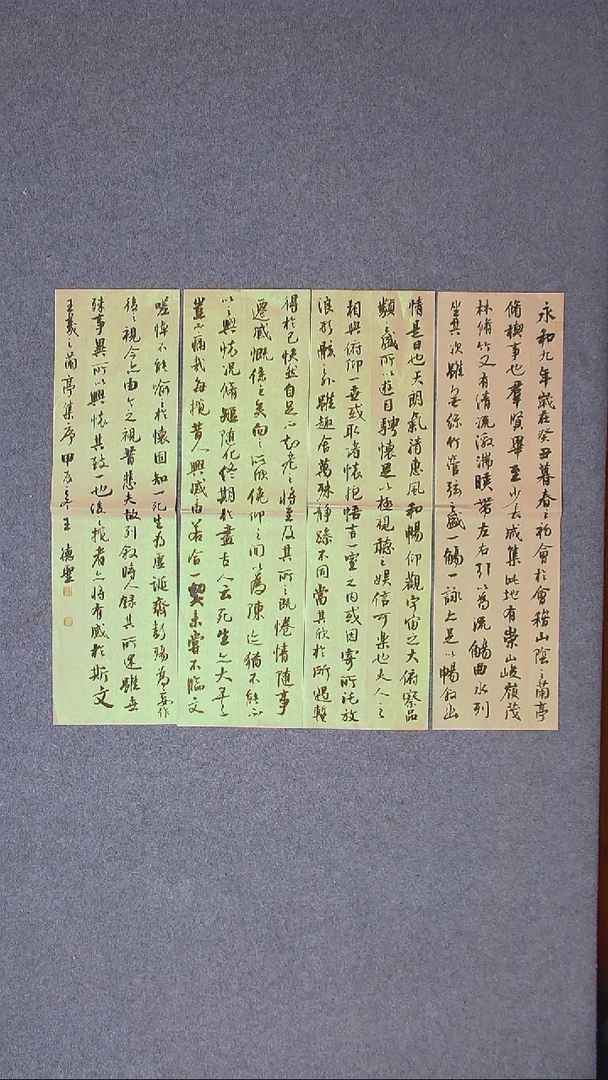 永和九年歲在癸丑暮春之初會於會稽山陰之蘭亭
脩禊事也羣賢畢至少長咸集此地有崇山峻嶺茂
林脩竹又有清流激湍暎帶左右引以為流觴曲水列
坐其次雖無絲竹管弦之盛一觴一詠亦足以暢敘幽
情是日也天朗氣清惠風和暢仰觀宇宙之大俯察品
類之盛所以遊目騁懷足以極視聽之娛信可樂也夫人之
相與俯仰一世或取諸懷抱悟言一室之內或因寄所託放
浪形骸之外雖趣舍萬殊靜躁不同當其欣於所遇暫
得於己快然自足不知老之將至及其所之既惓情隨事
遷感慨係之矣向之所欣俛仰之間以為陳迹猶不能不
以之興懷況脩短隨化終期於盡古人云死生亦大矣
豈不痛哉每攬昔人興感由若合一契未嘗不臨文
嗟悼不能喻於懷固知一死生為虛誕齊彭殤為妄作
後之視今亦由今之視昔悲夫故列敘時人錄其所述雖世
殊事異所以興懷其致一也後之攬者亦將有感於斯文
王羲之蘭亭集序 甲辰冬王德聖